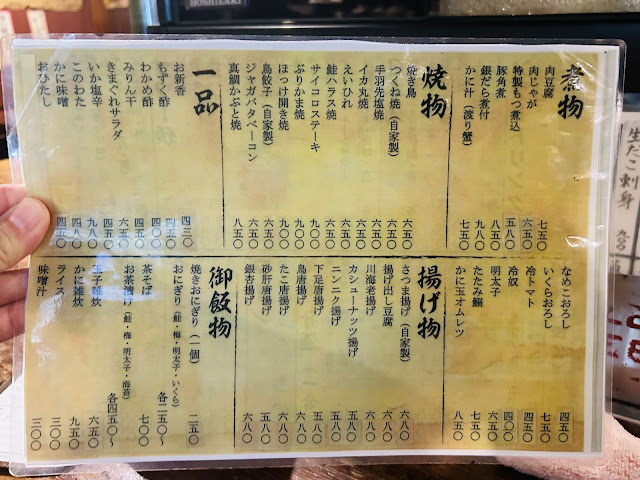 HOSHIZAKI
煮物
肉豆腐 七五〇
肉じゃが 六五〇
特製もつ煮込 五八〇
豚角煮 八五〇
銀だら煮付 九八〇
かに汁（渡り蟹） 七五〇
焼物
焼き鳥 六五〇
つくね焼（自家製） 六五〇
手羽先塩焼 六五〇
イカ丸焼 七五〇
えいひれ 六五〇
鮭ハラス焼 七五〇
サイコロステーキ 九〇〇
ぶりかま焼 九〇〇
ほっけ開き焼 九〇〇
鳥餃子（自家製） 六五〇
ジャガバタベーコン 六五〇
真鯛かぶと焼 八五〇
一品
お新香 四三〇
もずく酢 四五〇
わかめ酢 四〇〇
みりん干 四五〇
きまぐれサラダ 六五〇
いか塩辛 四五〇
このわた 九八〇
かに味噌 四八〇
おひたし 四五〇
なめこおろし 四五〇
いくらおろし 七五〇
冷トマト 四五〇
冷奴 四〇〇
明太子 六五〇
たたみ鰯 七五〇
かに玉オムレツ 八五〇
揚げ物
さつま揚げ（自家製） 六八〇
揚げ出し豆腐 六八〇
川海老揚げ 六八〇
カシューナッツ揚げ 五八〇
ニンニク揚げ 五八〇
下足唐揚げ 五八〇
鳥唐揚げ 六八〇
たこ唐揚げ 六八〇
砂肝唐揚げ 五八〇
銀杏揚げ 六八〇
御飯物
焼きおにぎり（一個） 二五〇
おにぎり（鮭・梅・明太子・いくら） 各二五〇〜
茶そば 七〇〇
お茶漬け（鮭・梅・明太子・海苔） 各四五〇〜
玉子雑炊 六五〇
かに雑炊 九五〇
ライス 三〇〇
味噌汁 三〇〇
生だこ刺身